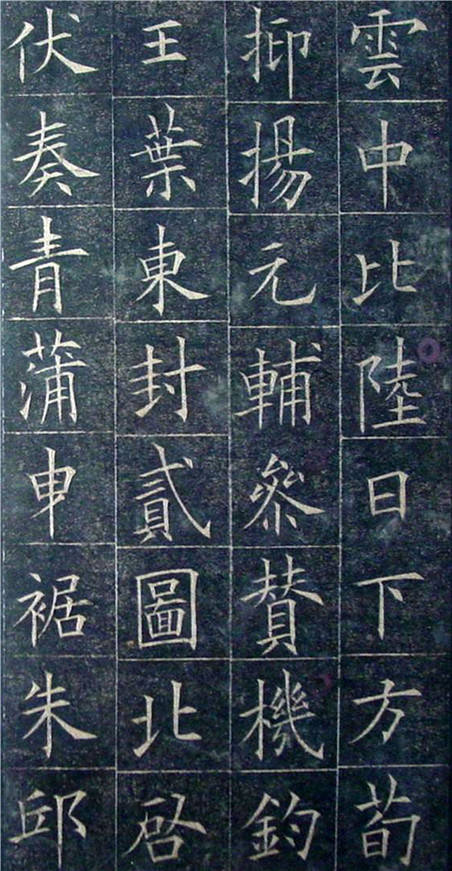 雲中比陸日下方荀
抑揚元輔參賛機鈞
王葉東封貳圖北啓
伏奏青蒲申裾朱邸